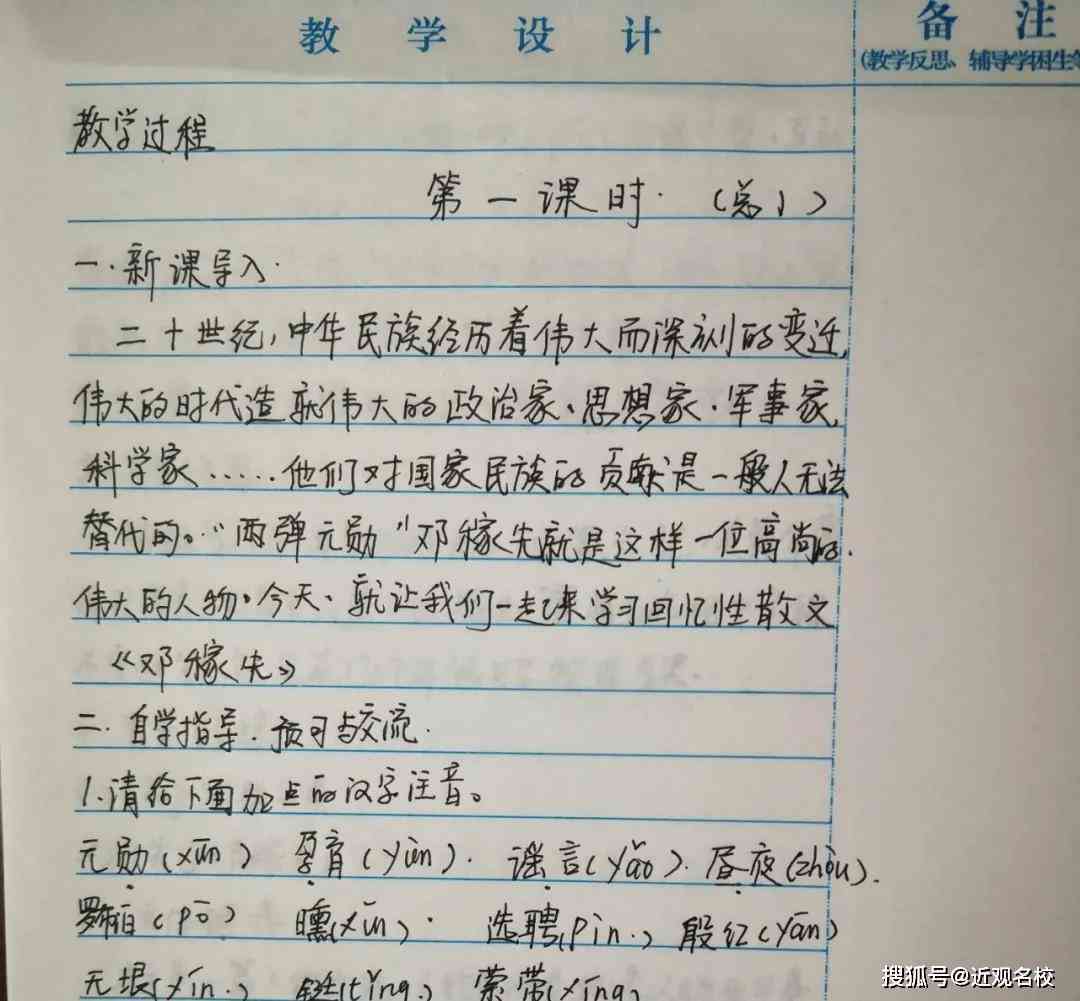 教学设计
备注
(教学反思、辅导学困生
教学过程
第一课时·(总1)
一·新课导入·
二十世纪,中华民族经历着伟大而深刻的变迁,
伟大的时代造就伟大的政治家、思想家·军事家,
科学家……他们对国家民族的贡献是一般人无法
替代的。"两弹元勋"邓稼先就是这样一位高尚的、
伟大的人物。今天、就让我们一起来学习回忆性散文
《邓稼先》
二.自学指导.预习与交流.
1.请给下面加点的汉字注音。
元勋(xūn) 孕育(yùn). 谣言(yáo). 昼夜(zhòu).
(pō) (xūn)· 选聘(pìn.) 殷红(yān)
无垠(yín.) (tǐng.) 萦带(yíng)
搜狐号@近观名校